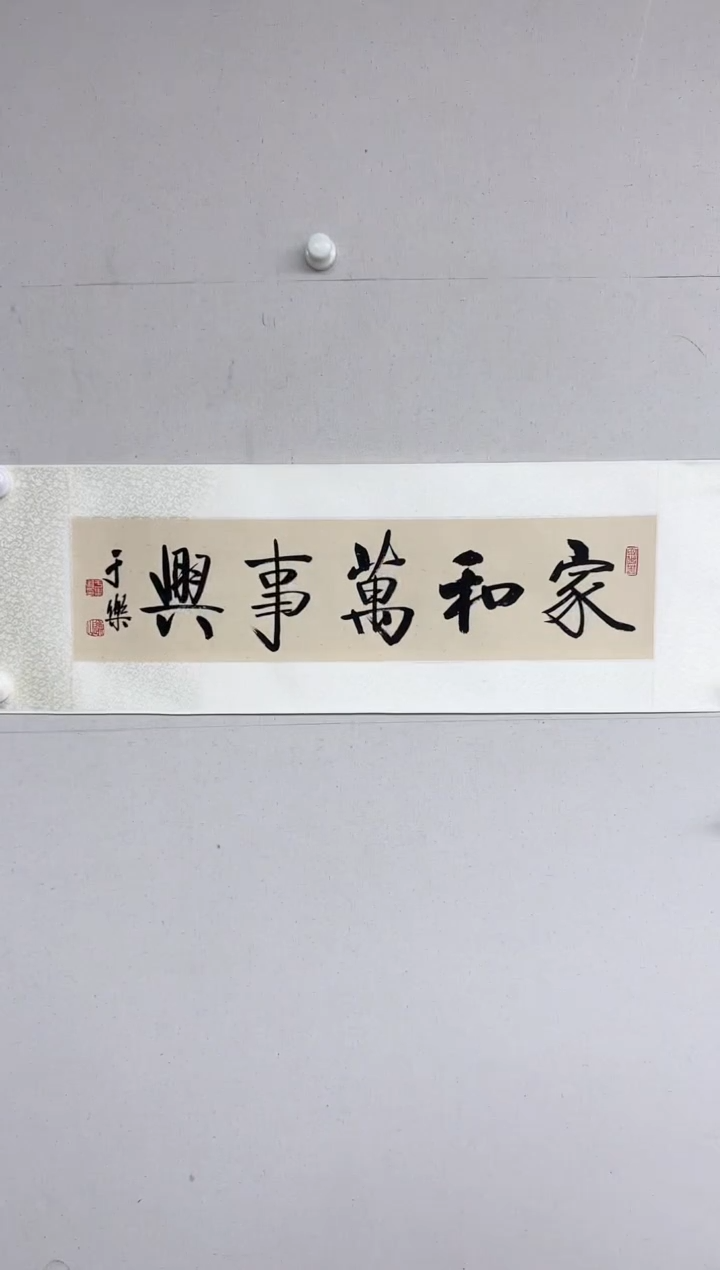 家和萬事興
于樂